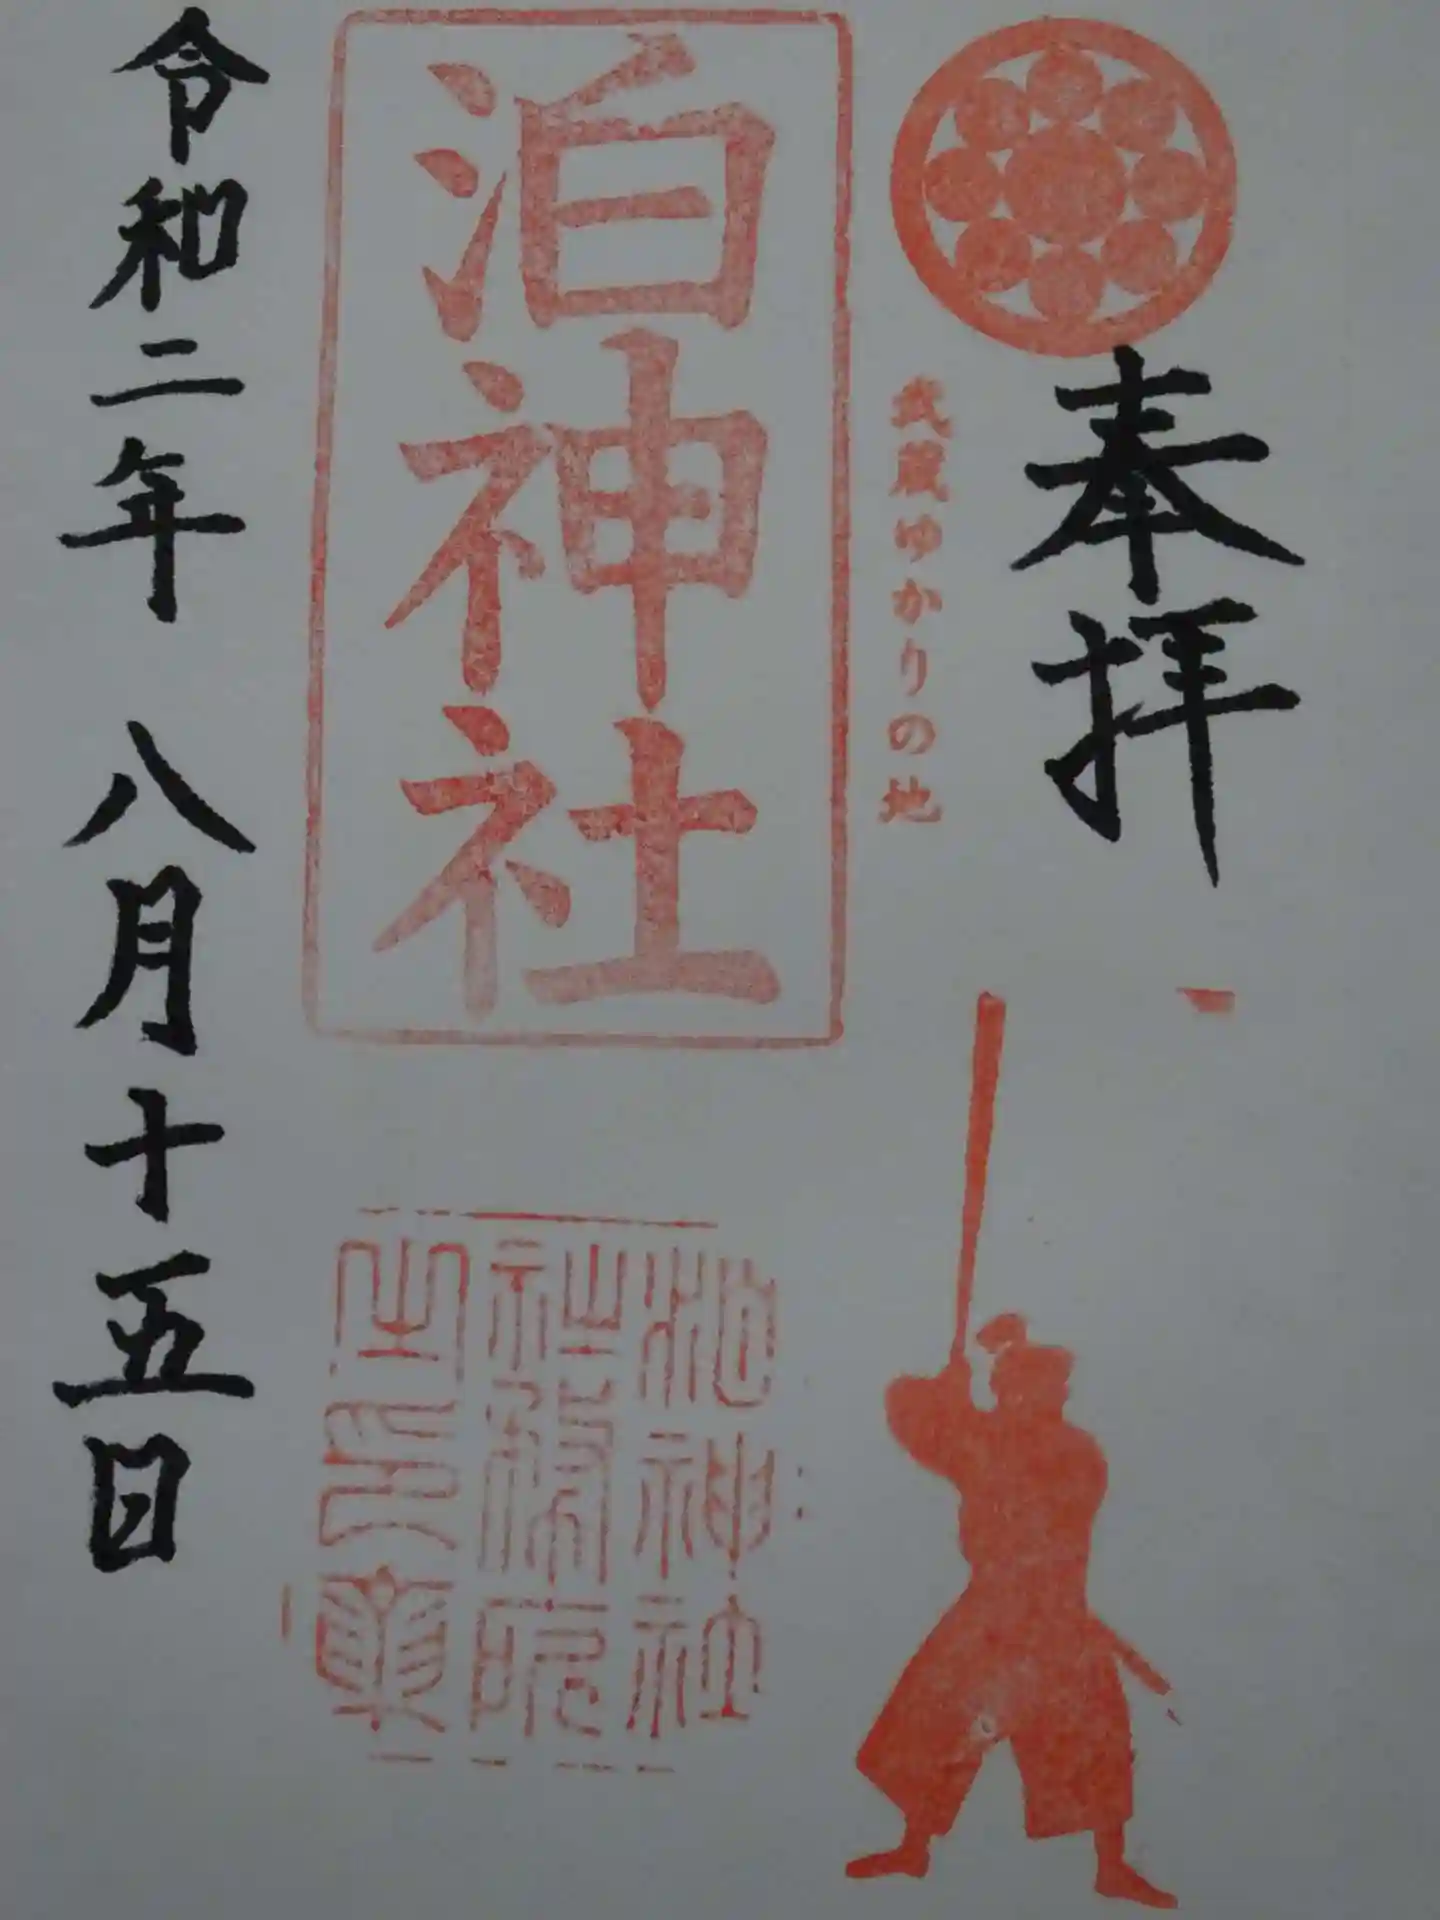 奉拝
武蔵ゆかりの地
泊神社
泊神社
社務所
之印
令和二年 八月十五日